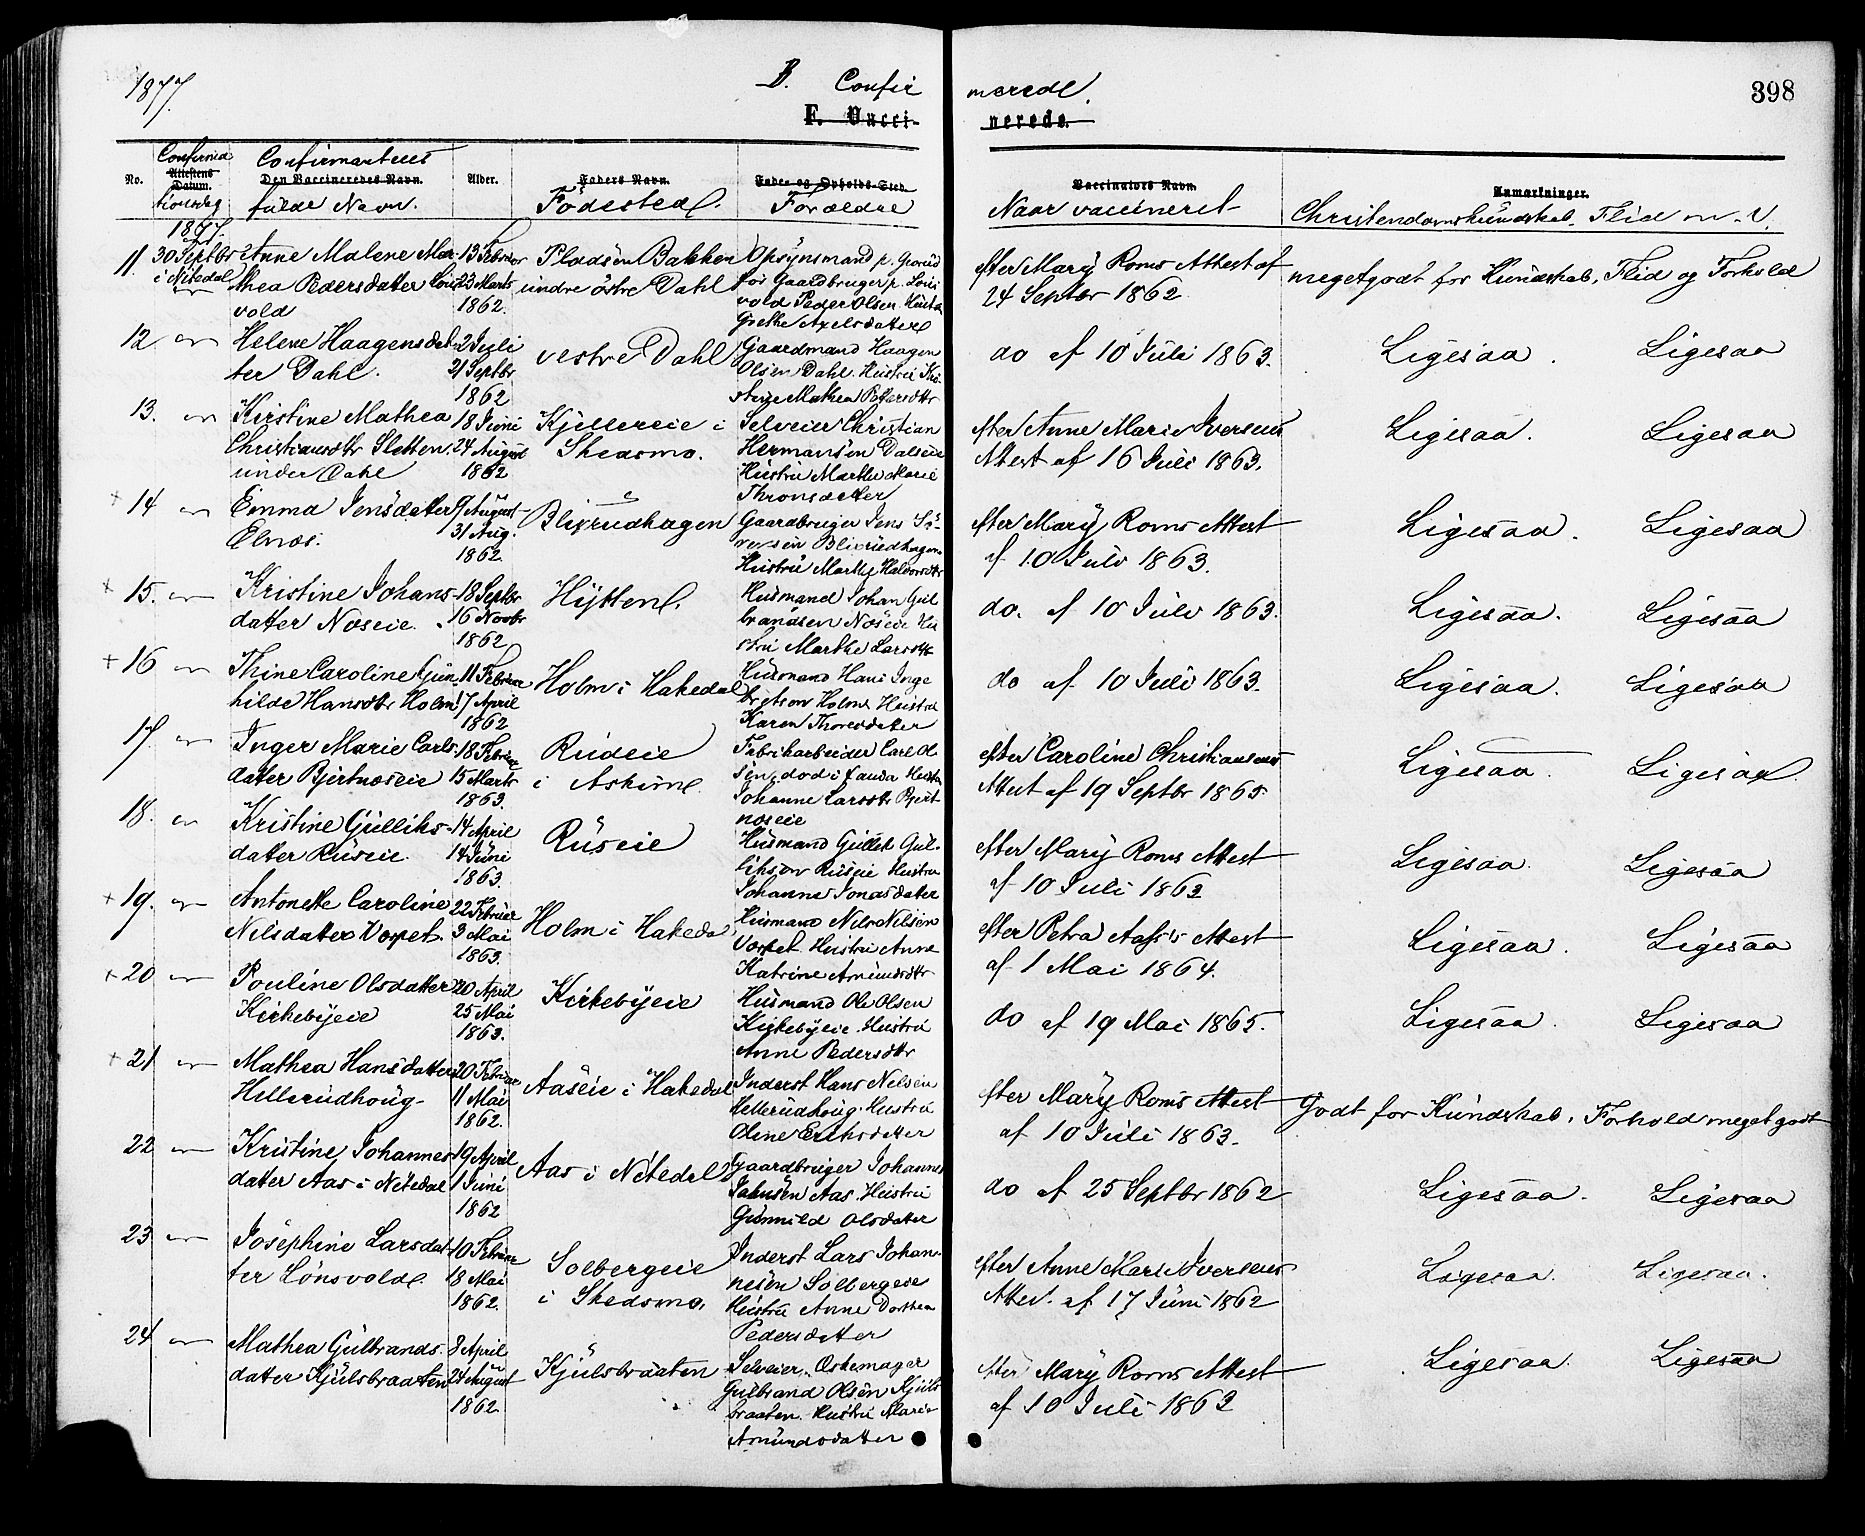 1877.
B. Confir merede.
398
F. Vacci- nerede.
No.
Confirma
Attestens Datum.
tionsdag
Confirmantens
Den Vaccineredes Navn.
fulde Navn.
Alder.
Faders Navn.
Födested.
Føde- og Opholds-Sted.
Forældre
Vaccinators Navn.
Naar vaccineret
Anmærkninger.
Christendomskundskab, Flid m. V.
1877.
11. 30 Septbr Anne Malene Mar- 13 Februar Pladsen Bakken Opsynsmand p.
i Nitedal thea Pedersdatter Löns 23 Marts undre östre Dahl för Gaardbruger p. Löns
vold 1862. vold Peder Olsen. Hustru
Grethe Axelsdatter
efter Mary Roms Attest af meget godt for Kundskab, Flid og Forhold
24 Septbr 1862.
12 Helene Haagensdat- 2 Juli vestre Dahl Gaardmand Haagen
ter Dahl. 21 Septbr Olsen Dahl. Hustru Kri-
1862 stine Mathea Pettersdtr
do af 10 Juli 1863. Ligesaa. Ligesaa
13. Kirstine Mathea 18 Juni Kjellereie i Selveier Christian
Christiansdtr Sletten 24 August Skedsmo. Hermansen Daleneie
under Dahl 1862 Hustru Marthe Marie
Thronsdatter
efter Anne Marie Iversens Ligesaa. Ligesaa
Attest af 16 Juli 1863.
+ 14 Emma Jensdatter 9 August Blixrudhagen Gaardbruger Jens Sö-
Elnæs. 31 Aug. rensen Blixrudhagen
1862. Hustru Marthe Halvorsdtr
efter Mary Roms Attest Ligesaa. Ligesaa
af 10 Juli 1863.
+ 15. Kristine Johans- 18 Septbr Hytten. Husmand Johan Gul
datter Næseie. 16 Novbr brandsen Næseie Hu
1862 stru Marthe Larsdtr
do. af 10 Juli 1863. Ligesaa. Ligesaa
+ 16 Thine Caroline Gun- 11 Februar Holm i Hakedal Husmand Hans Inge
hilde Hansdtr Holm 17 April brigtsen Holm Hustru
1862 Karen Thoresdatter
do af 10 Juli 1863. Ligesaa. Ligesaa
17. Inger Marie Carls- 18 Februar Rudeie Fabrikarbeider Carl Ol
datter Bjertnæseie 15 Marts i Askim. sen, död i Hustru
1863. Johanne Larsdtr Bjert
næseie
efter Caroline Christiansens Ligesaa. Ligesaa.
Attest af 19 Septbr 1865.
18. Kristine Gulliks- 14 April Ruseie Husmand Gullik Gul-
datter Ruseie. 14 Juni liksen Ruseie Hustru
1863. Johanne Jonasdatter
efter Mary Roms Attest Ligesaa. Ligesaa
af 10 Juli 1863
+ 19. Antonette Caroline 22 Februar Holm i Hakedal Husmand Nils Nilsen
Nilsdatter Vorpet. 3 Mai Vorpet. Hustru Anne
1863. Katrine Amundsdtr
efter Petra Aass's Attest Ligesaa. Ligesaa
af 1 Mai 1864.
+ 20 Pouline Olsdatter 20 April Kirkebyeie Husmand Ole Olsen
Kirkebyeie 25 Mai Kirkebyeie. Hustru
1863. Anne Pedersdtr
do af 19 Mai 1865. Ligesaa. Ligesaa
+ 21 Mathea Hansdatter 20 Februar Aaseie i Hakedal Inderst Hans Nelsen
Hellerudhoug- 11 Mai Hellerudhoug. Hustru
1862. Oline Eriksdatter
efter Mary Roms Attest Godt for Kundskab. Forhold meget godt
af 10 Juli 1863.
22 Kristine Johannes- 19 April Aas i Nitedal Gaardbruger Johannes
datter Aas i Nitedal 1 Juni Aas. Hustru
1862 Gunnild Olsdatter
do af 25 Septbr 1862 Ligesaa. Ligesaa
23 Josephine Larsdat- 10 Februar Solbergeie Inderst Lars Johan-
ter Lönsvold. 18 Mai i Skedsmo. nesen Solbergeie
1862. Hustru Anne Dorthea
Pedersdatter
efter Anne Marie Iversens Ligesaa. Ligesaa.
Attest. af 17 Juni 1862
24 Mathea Gulbrands- 8 April Kjulsbraaten Selveier,
datter Kjulsbraaten 24 August Gulbrand Olsen Kjuls
1862 braaten. Hustru Marie
Amundsdatter
efter Mary Roms Attest Ligesaa. Ligesaa
af 10 Juli 1863